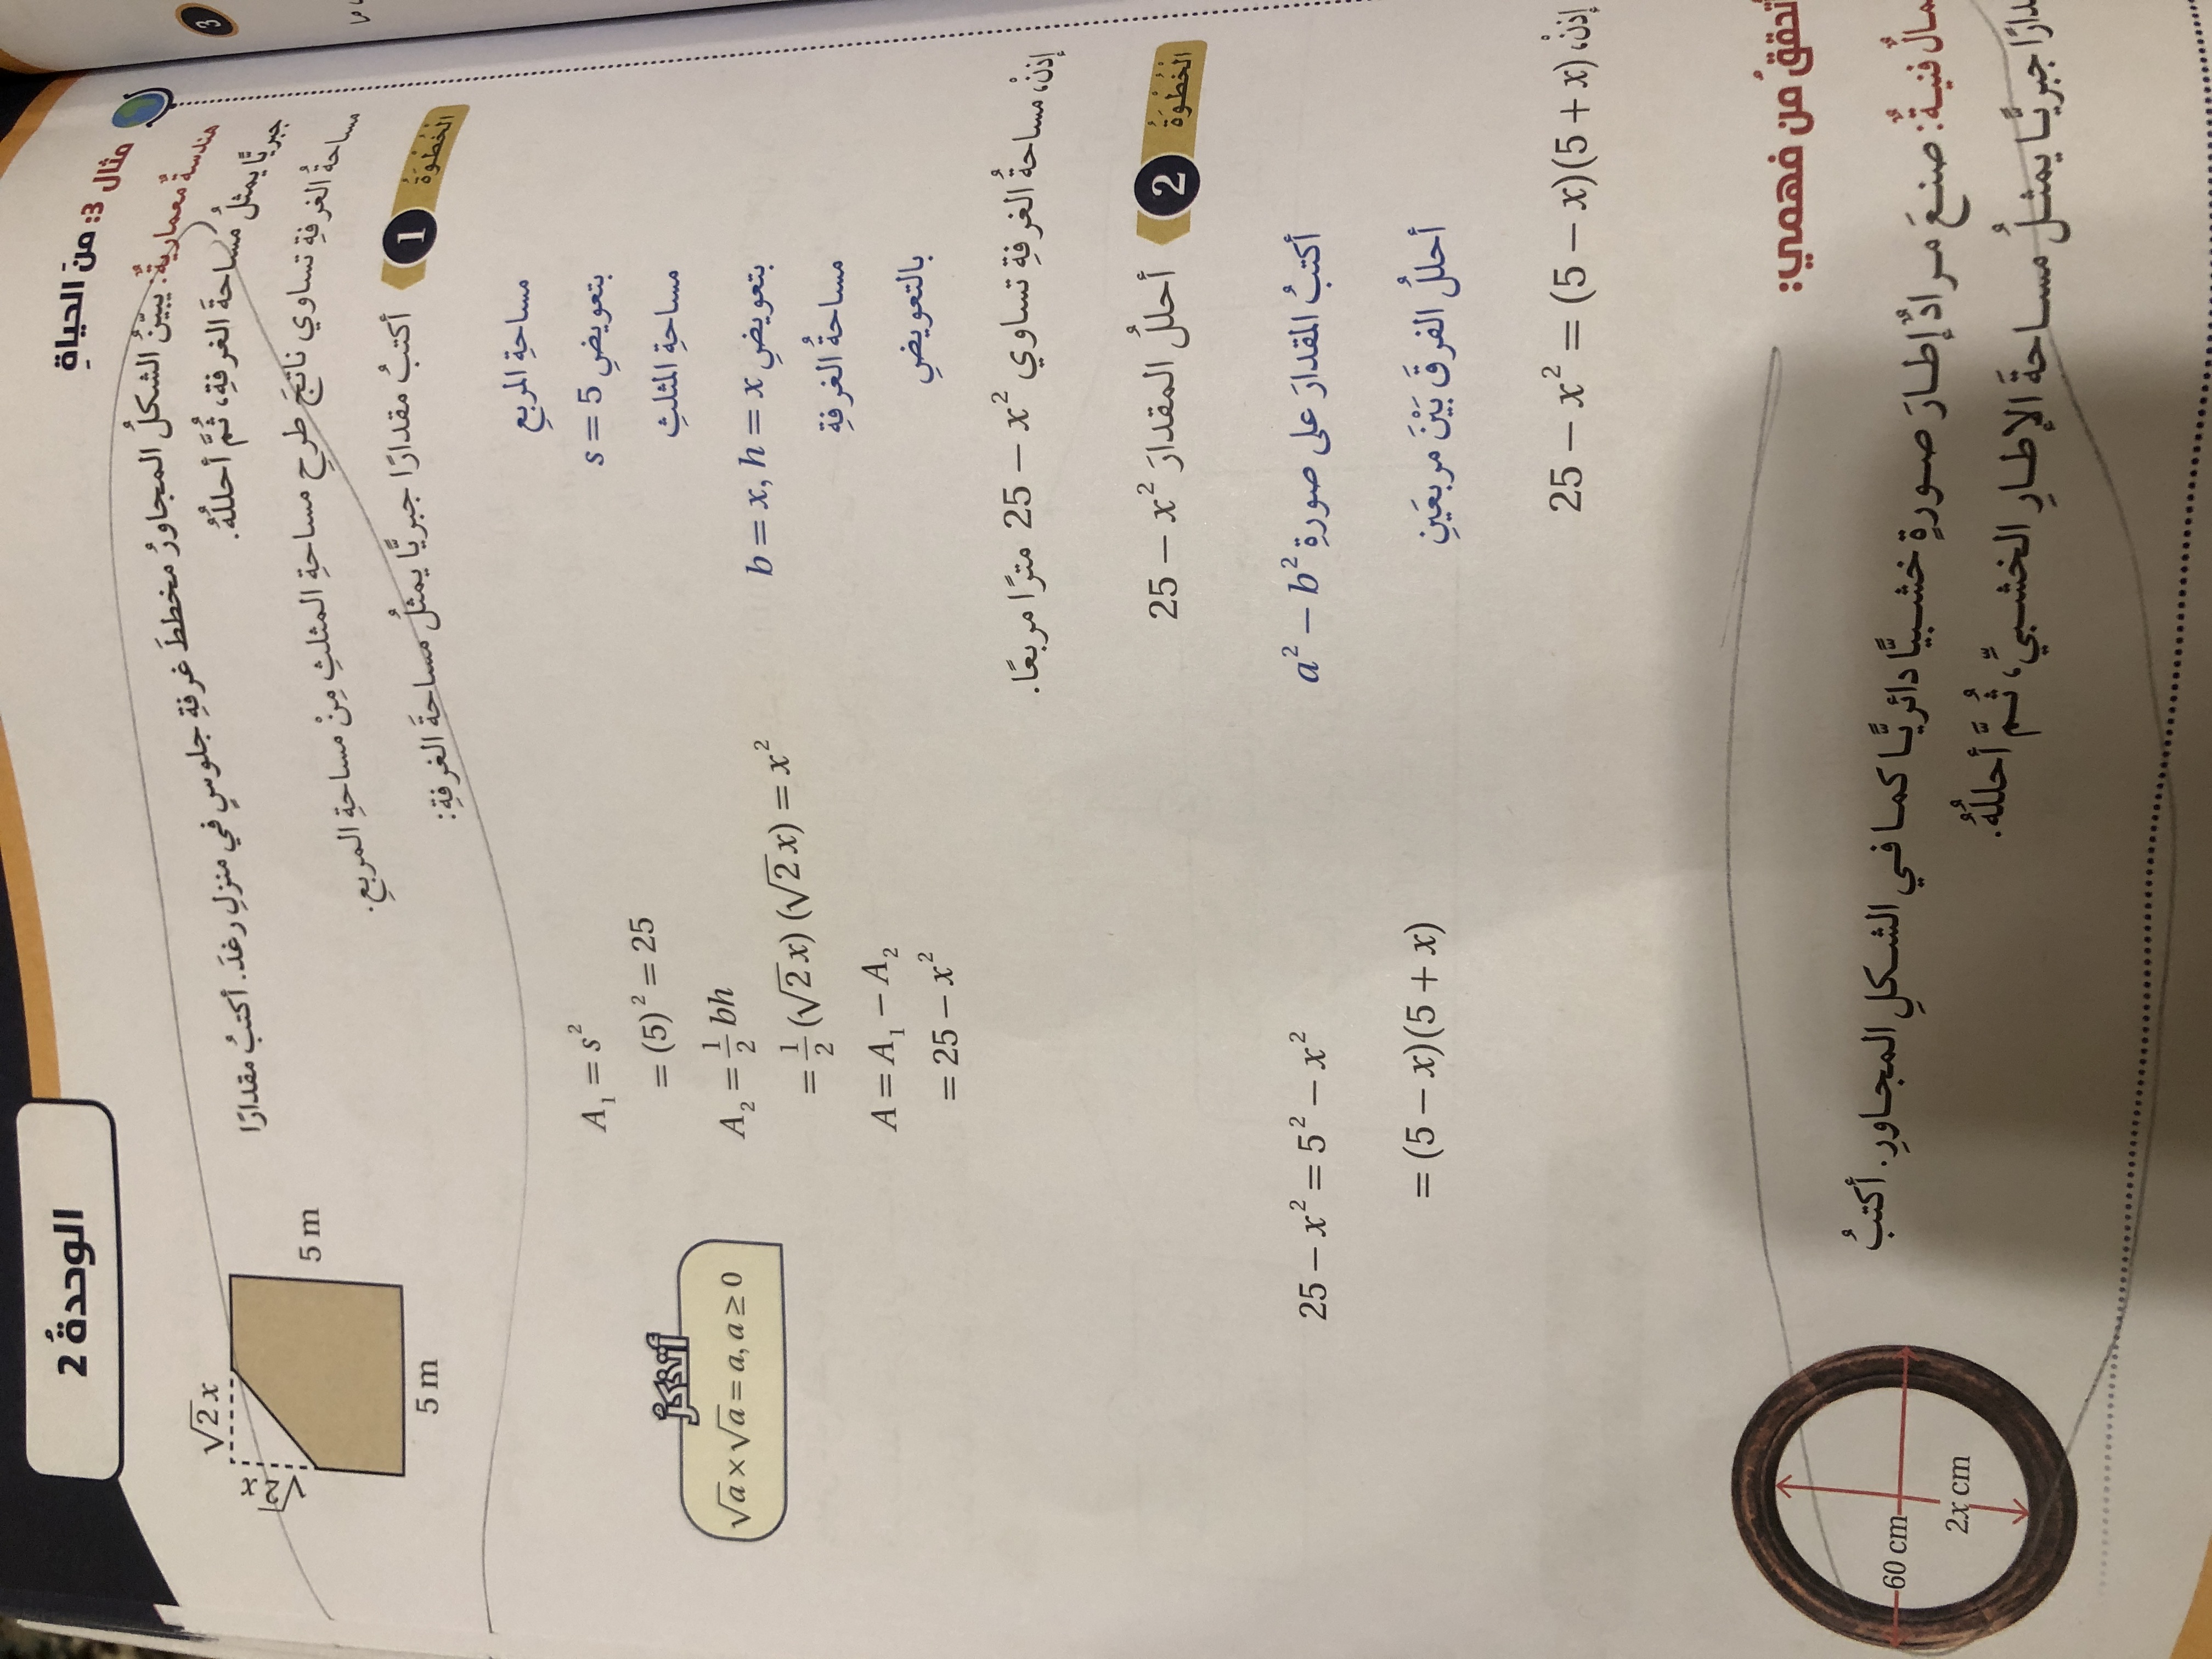 الوحدةُ 2
مثال 3: من الحياةِ
هندسةٌ معماريةٌ: يبيّنُ الشكلُ المجاورُ مخططَ غرفةِ جلوسٍ في منزلِ رغدَ. أكتبُ مقدارًا
جبريًّا يمثلُ مساحةَ الغرفةِ، ثُمَّ أحللُهُ.
√2 x
√2 x
5 m
5 m
مساحةُ الغرفةِ تساوي ناتجَ طرحِ مساحةِ المثلثِ مِنْ مساحةِ المربعِ.
الْخُطْوَةُ 1 أكتبُ مقدارًا جبريًّا يمثلُ مساحةَ الغرفةِ:
A₁ = s² مساحةِ المربعِ
= (5)² = 25 بتعويضِ s = 5
A₂ = 1/2 bh مساحةِ المثلثِ
= 1/2 (√2 x) (√2 x) = x² بتعويضِ b = x, h = x
A = A₁ − A₂ مساحةُ الغرفةِ
= 25 − x² بالتعويضِ
أتذكَّرُ
√a × √a = a, a ≥ 0
إذنْ، مساحةُ الغرفةِ تساوي 25 − x² مترًا مربعًا.
الْخُطْوَةُ 2 أحللُ المقدارَ 25 − x²
25 − x² = 5² − x² أكتبُ المقدارَ على صورةِ a² − b²
= (5 − x)(5 + x) أحللُ الفرقَ بَيْنَ مربعَينِ
إذنْ، 25 − x² = (5 − x)(5 + x)
أتحققُ من فهمي:
فنيةٌ: صنعَ مرادٌ إطارَ صورةٍ خشبيًّا دائريًّا كما في الشكلِ المجاورِ. أكتبُ
جبريًّا يمثلُ مساحةَ الإطارِ الخشبيِّ، ثُمَّ أحللُهُ.
60 cm
2x cm
3